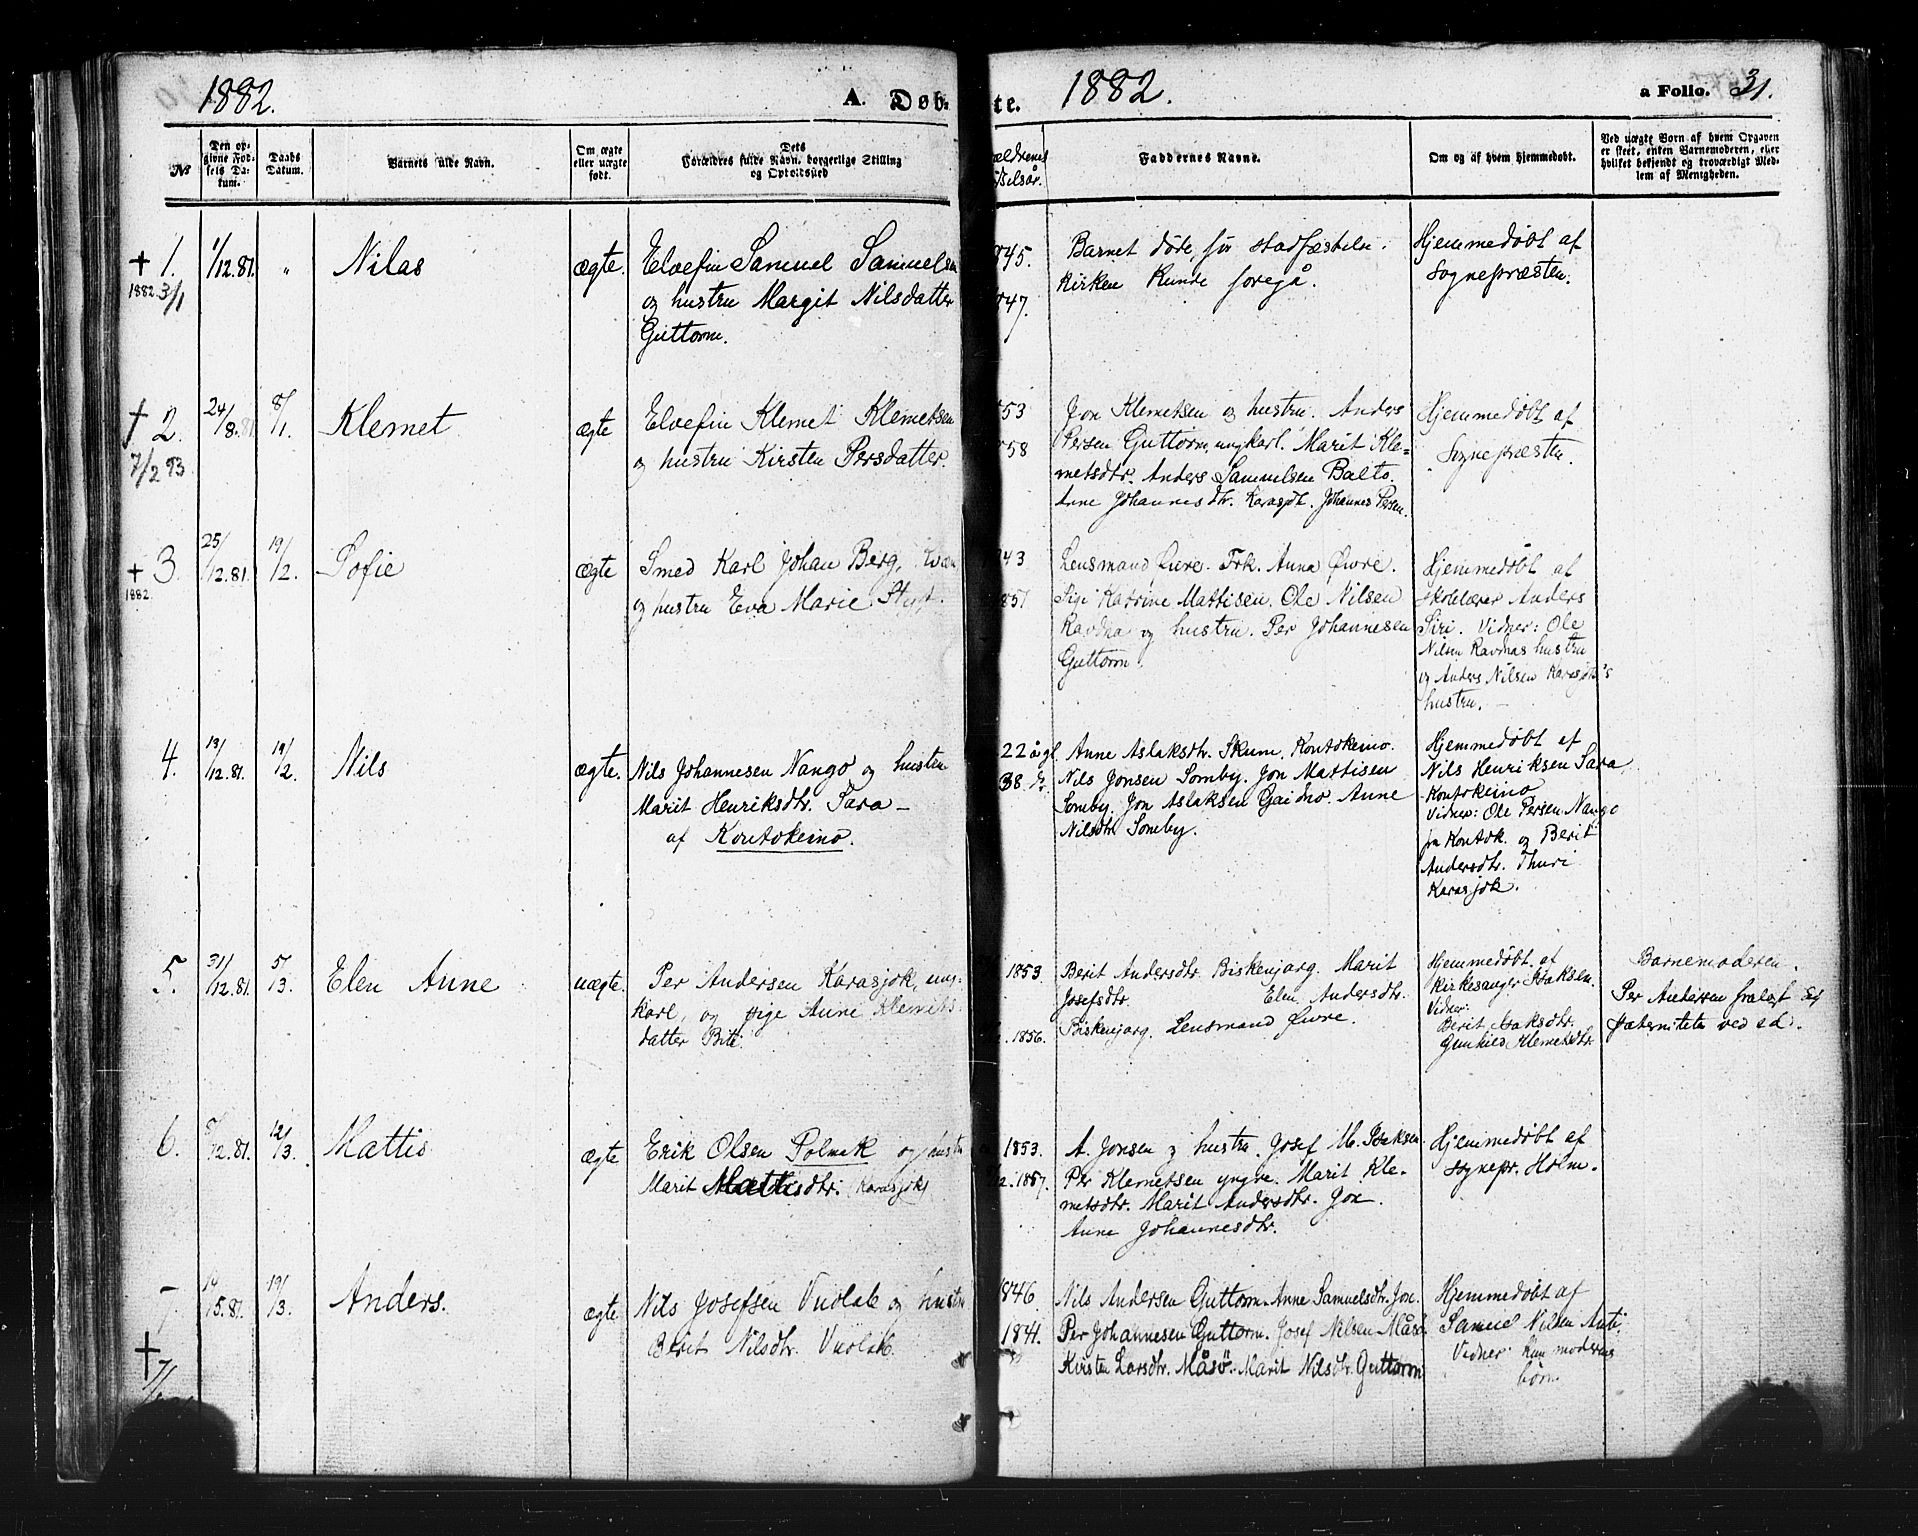 1882.
A. Døb-
te. 1882.
a Folio. 31.
No
Den op-
givne Fød-
sels Da-
tum.
Daabs
Datum.
Barnets fulde Navn.
Om ægte
eller uægte
født.
Dets
Forældres fulde Navn, borgerlige Stilling
og Opholdssted
Faddernes Navne.
Om og af hvem hjemmedøbt.
Ved uægte Børn af hvem Opgaven
er skeet, enten Barnemoderen, eller
hvilket bekjendt og troværdigt Med-
lem af Menigheden.
+ 1. 1/12.81. " Nilas ægte.
1882 3/1
Elvefin Samuel Samuelsen
og hustru Margit Nilsdatter
Guttorm.
845.
847.
Barnet døde, før stadfæstelse i
kirken kunde foregå.
Hjemmedøbt af
Sognepræsten.
+ 2. 24/8.81 8/1. Klemet ægte
7/2 93
Elvefin Klemet Klemetsen
og hustru Kirsten Persdatter.
853
858
Jon Klemetsen og hustru. Anders
Persen Guttorm, ungkarl. Marit Kle-
metsdtr. Anders Samuelsen Balto.
Anne Johannesdtr. Karasjok. Johannes Persen.
Hjemmedøbt af
Sognepræsten.
+ 3. 25/12.81. 19/2. Sofie ægte
1882.
Smed Karl Johan Berg,
og hustru Eva Marie
843
1851
Lensmand Øvre. Frk. Anna Øvre.
Pige Katrine Mattisen. Ole Nilsen
Ravdna og hustru. Per Johannesen
Guttorm.
Hjemmedøbt af
skolelærer Anders
Siri. Vidner: Ole
Nilsen Ravnas hustru
og Anders Nilsen Karasjok's
hustru. —
4. 13/12.81. 19/2. Nils ægte.
Nils Johannesen Nango og hustru
Marit Henriksdtr. Sara —
af Koutokeino.
22 å gl.
38.
Anne Aslaksdtr. Skum, Koutokeino.
Nils Jonsen Somby. Jon Mattisen
Somby. Jon Aslaksen Gaidno. Anne
Nilsdtr. Somby.
Hjemmedøbt af
Nils Henriksen Sara
Koutokeino
Vidner: Ole Persen Nango
fra Koutok. og Berit
Andersdtr. Thuri
Karasjok.
5. 31/12.81. 5/3. Elen Anne uægte.
Per Andersen Karasjok, ung-
karl, og pige Anne Klemets-
datter Biti
1853
1856.
Berit Andersdtr. Biskenjarg. Marit
Josefsdtr. Elen Andersdtr.
Biskenjarg. Lensmand Øvre.
Hjemmedøbt af
Kirkesanger Isaksen.
Vidner:
Berit Isaksdtr.
Gunhild Klemetsdtr.
Barnemoderen.
Per Andersen fralagt sig
pæterniteten ved ed.
6. 8/12.81. 12/3. Mattis ægte
Erik Olsen Polmak og hustru
Marit Mattisdtr. Karasjok
1853.
1857.
A. Jonsen og hustru. Josef M. Isaksen.
Per Klemetsen yngre. Marit Kle-
metsdtr. Marit Andersdtr. Jon.
Anne Johannesdtr.
Hjemmedøbt af
sognepr. Holm.
7. 15.81. 19/3. Anders. ægte
+
Nils Josefsen Vuolab og hustru
Berit Nilsdtr. Vuolab.
1846.
1841.
Nils Andersen Guttorm. Anne Samuelsdtr. Jon.
Per Johannesen Guttorm. Josef Nilsen Måsø.
Kirsten Larsdtr. Måsø. Marit Nilsdtr. Guttorm
Hjemmedøbt af
Samuel Nilsen Anti.
Vidner: kun moderens
børn.